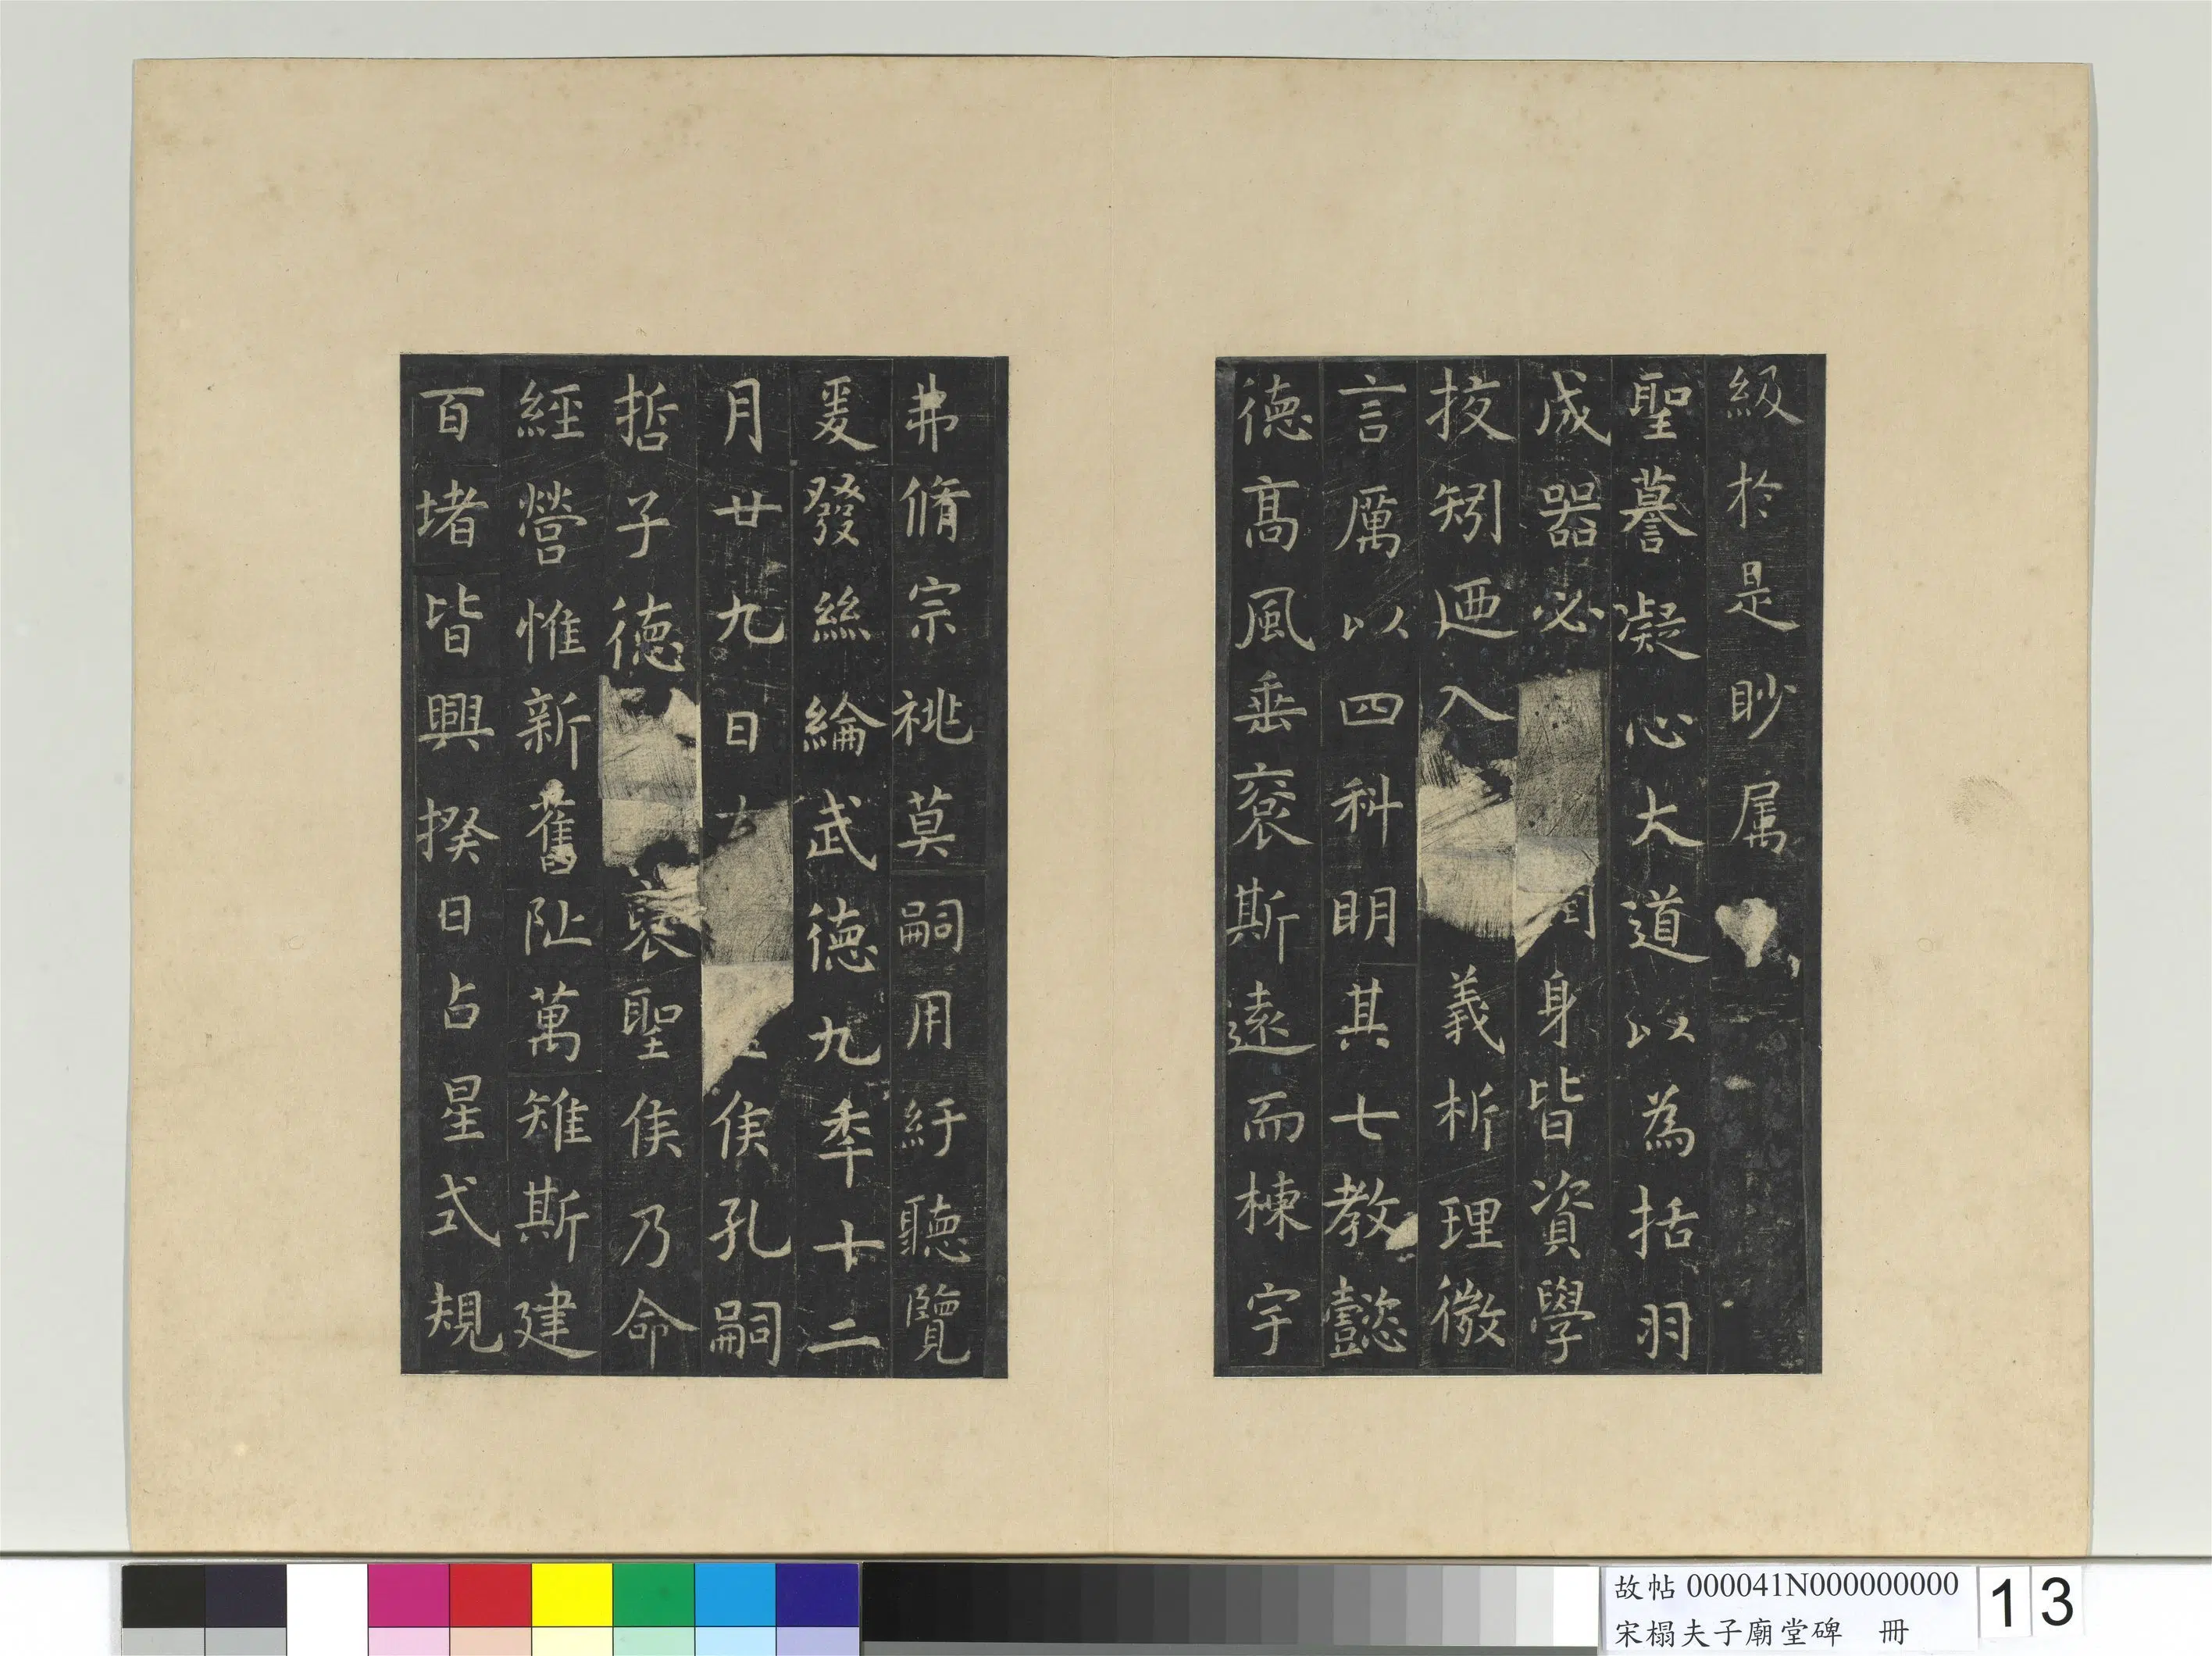 級於是眇屬
聖謩凝心大道以為括羽
成器必身皆資學
挍矧廼入義析理微
言厲以四科明其七教懿
德高風垂裦斯遠而棟宇
弗脩宗祧莫嗣用紆聽覽
爰發絲綸武德九秊十二
月廿九日侯孔嗣
哲子德襃聖侯乃命
經營惟新舊阯萬雉斯建
百堵皆興揆日占星式規
故帖 000041N000000000
宋榻夫子廟堂碑 冊
13